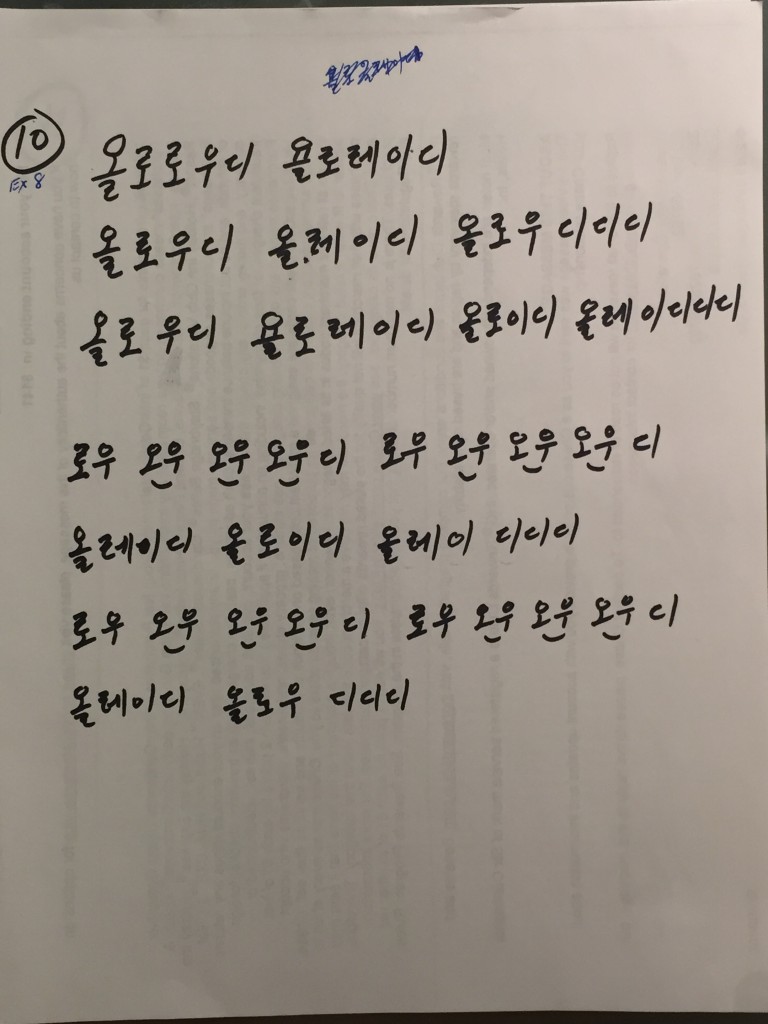 ⑩ 올로로우디 욜로레이디
Ex 8
올로우디 올레이디 올로우 디디디
올로 우디 욜로레이디 올로이디 올레이디디디
로우 오우 오우 오우디 로우 오우 오우 오우 디
올레이디 올로이디 올레이 디디디
로우 오우 오우 오우디 로우 오우 오우 오우 디
올레이디 올로우 디디디